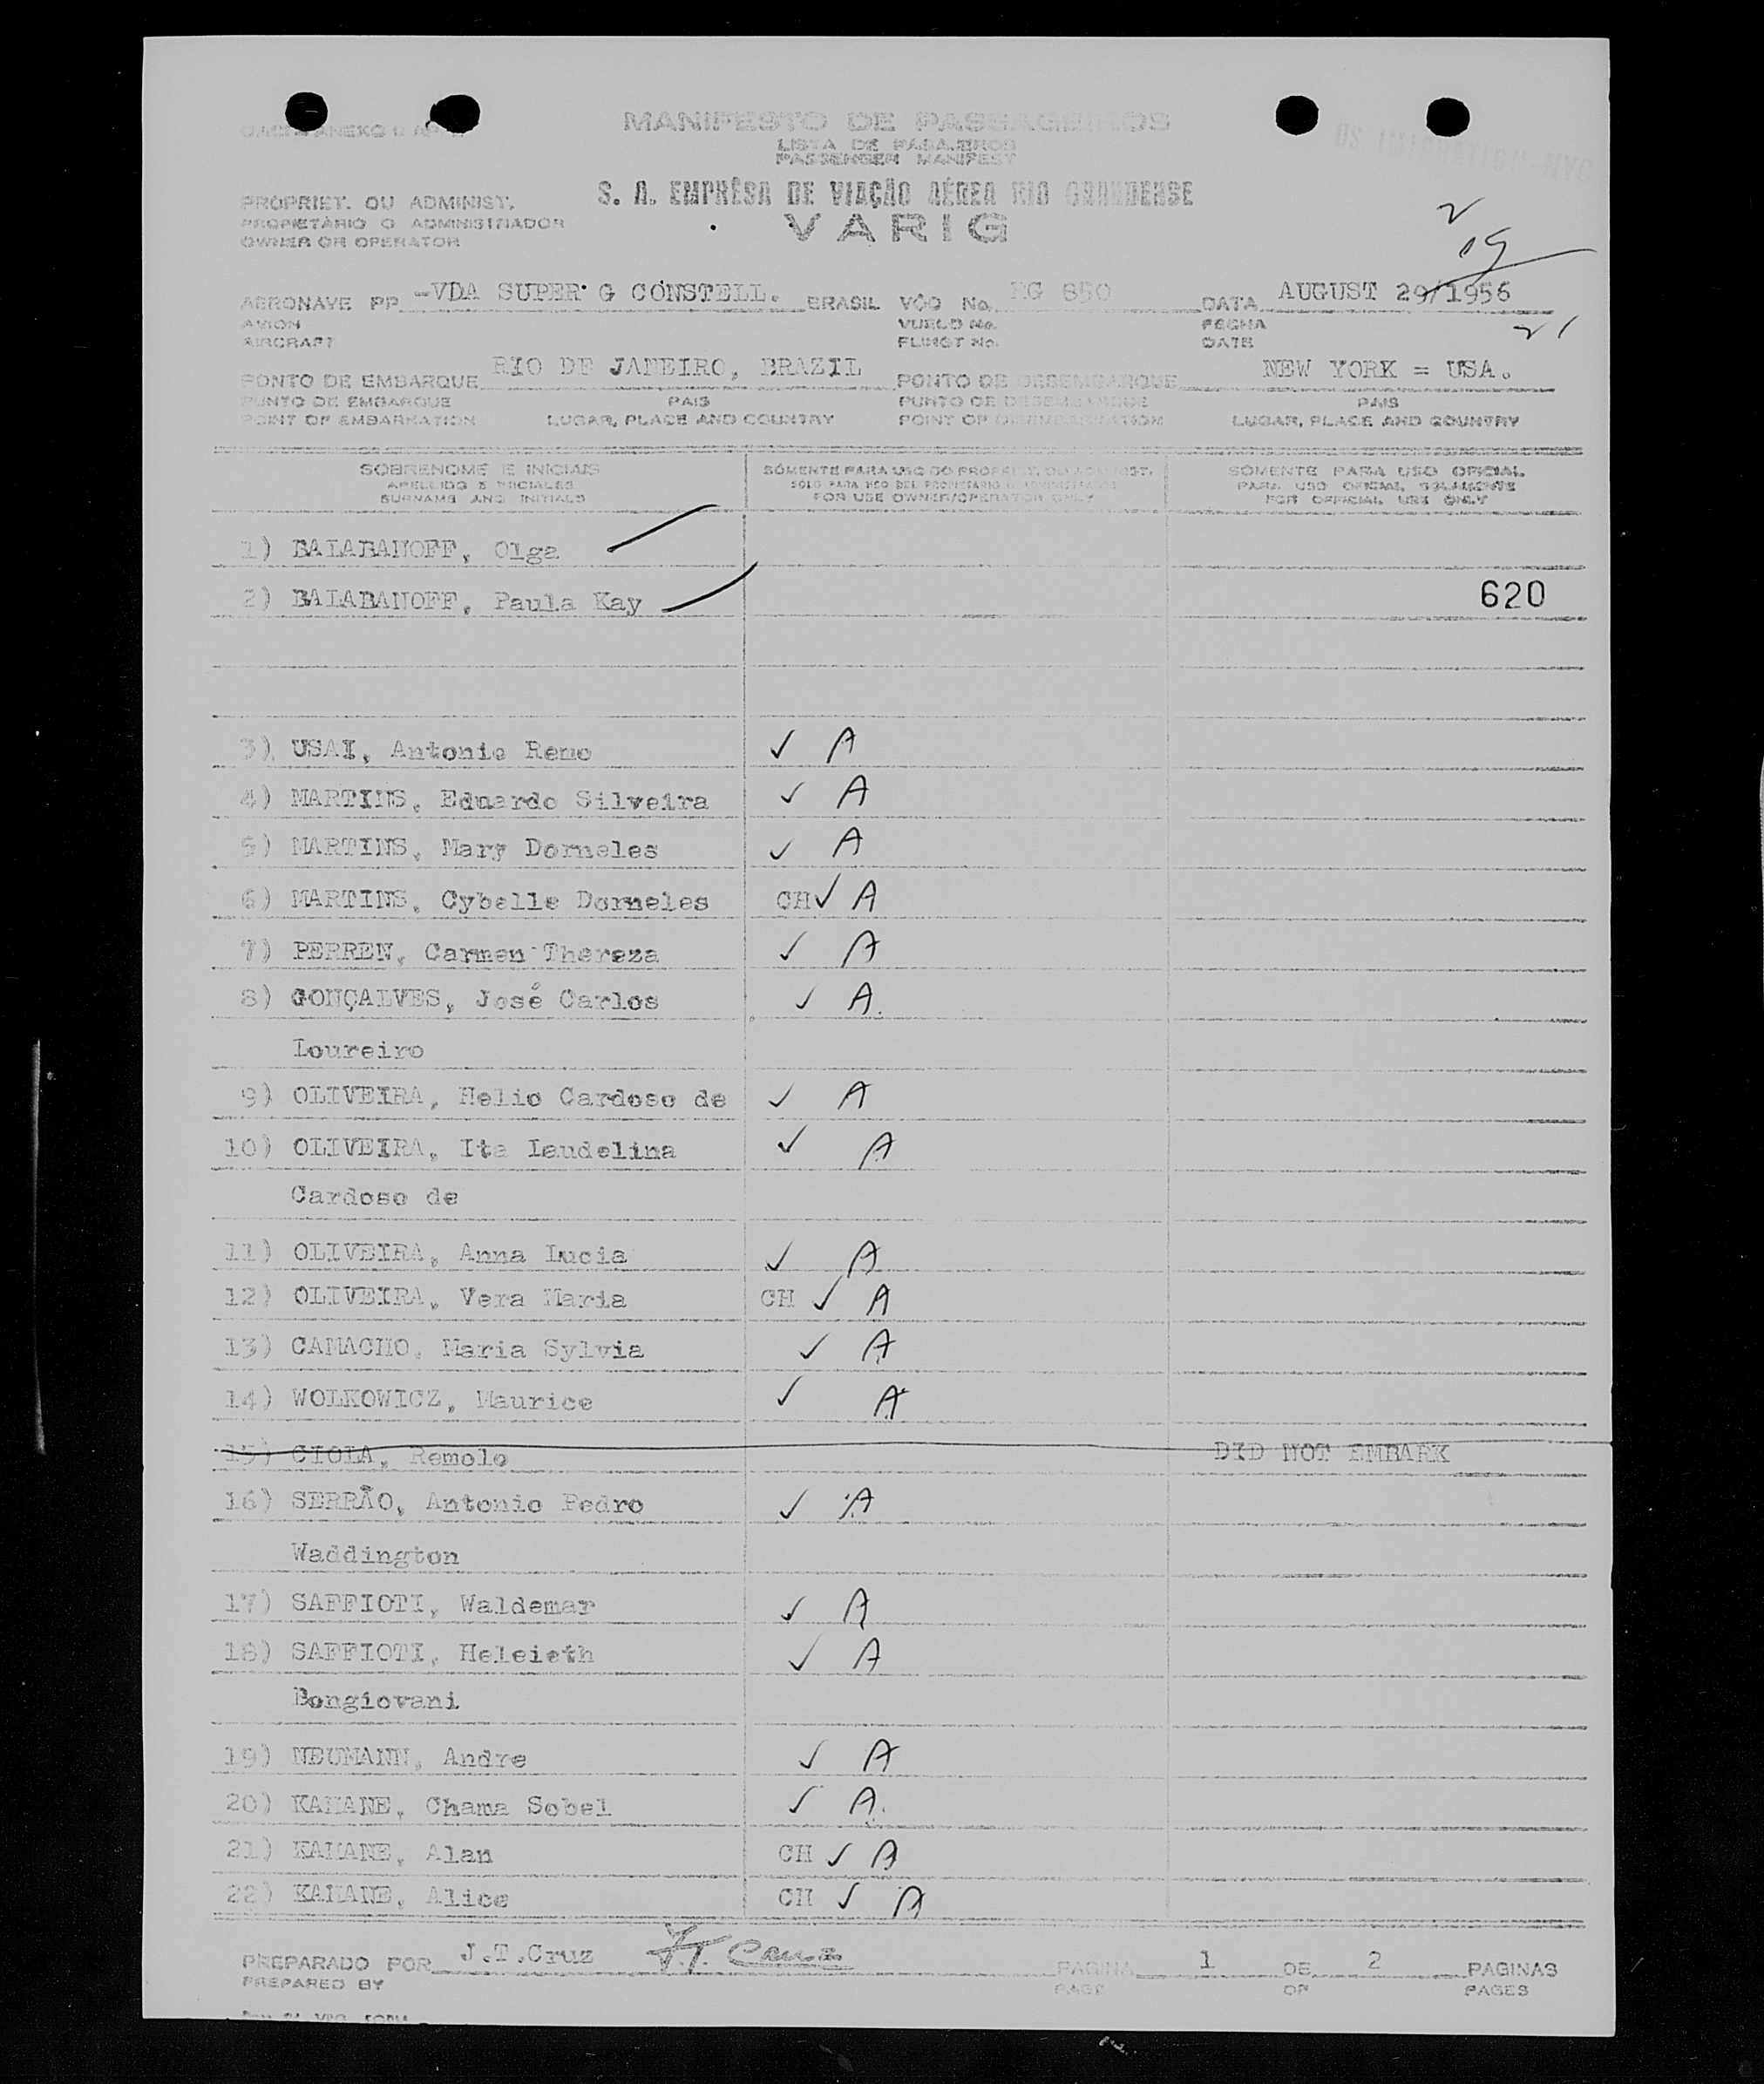 MANIFESTO DE PASSAGEIROS
LISTA DE PASAJEROS
PASSENGER MANIFEST
PROPRIET. OU ADMINIST.
S. A. EMPRÊSA DE VIAÇÃO AÉREA RIO GRANDENSE
PROPIETÁRIO O ADMINISTRADOR
VARIG
OWNER OR OPERATOR
AERONAVE PP -VDA SUPER G CONSTELL. BRASIL VÔO No. RG 850 DATA AUGUST 29/1956
AVION VUELO No. FECHA
AIRCRAFT FLIGHT No. DATE
21
PONTO DE EMBARQUE RIO DE JANEIRO, BRAZIL PONTO DE DESEMBARQUE NEW YORK = USA.
PUNTO DE EMBARQUE PAIS PUNTO DE DESEMBARQUE PAIS
POINT OF EMBARKATION LUGAR, PLACE AND COUNTRY POINT OF DISEMBARKATION LUGAR, PLACE AND COUNTRY
SOBRENOME E INICIAIS SÓMENTE PARA USO DO PROPRIET. OU ADMINIST. SÓMENTE PARA USO OFICIAL
APELLIDO E INICIALES SOLO PARA USO DEL PROPIETARIO O ADMINISTRADOR PARA USO OFICIAL SOLAMENTE
SURNAME AND INITIALS FOR USE OWNER/OPERATOR ONLY FOR OFFICIAL USE ONLY
1) BALABANOFF, Olga
2) BALABANOFF, Paula Kay 620
3) USAI, Antonio Remo ✓ A
4) MARTINS, Eduardo Silveira ✓ A
5) MARTINS, Mary Dorneles ✓ A
6) MARTINS, Cybelle Dorneles CH ✓ A
7) PERREN, Carmen Thereza ✓ A
8) GONÇALVES, José Carlos ✓ A
Loureiro
9) OLIVEIRA, Helio Cardoso de ✓ A
10) OLIVEIRA, Ita Laudelina ✓ A
Cardoso de
11) OLIVEIRA, Anna Lucia ✓ A
12) OLIVEIRA, Vera Maria CH ✓ A
13) CAMACHO, Maria Sylvia ✓ A
14) WOLKOWICZ, Maurice ✓ A
15) CIOLA, Remolo DID NOT EMBARK
16) SERRÃO, Antonio Pedro ✓ A
Waddington
17) SAFFIOTI, Waldemar ✓ A
18) SAFFIOTI, Heleieth ✓ A
Bongiovani
19) NEUMANN, Andre ✓ A
20) KAHANE, Chama Sobel ✓ A
21) KAHANE, Alan CH ✓ A
22) KAHANE, Alice CH ✓ A
PREPARADO POR J.T.Cruz J.T. Cruz PAGINA 1 DE 2 PAGINAS
PREPARED BY PAGE OF PAGES